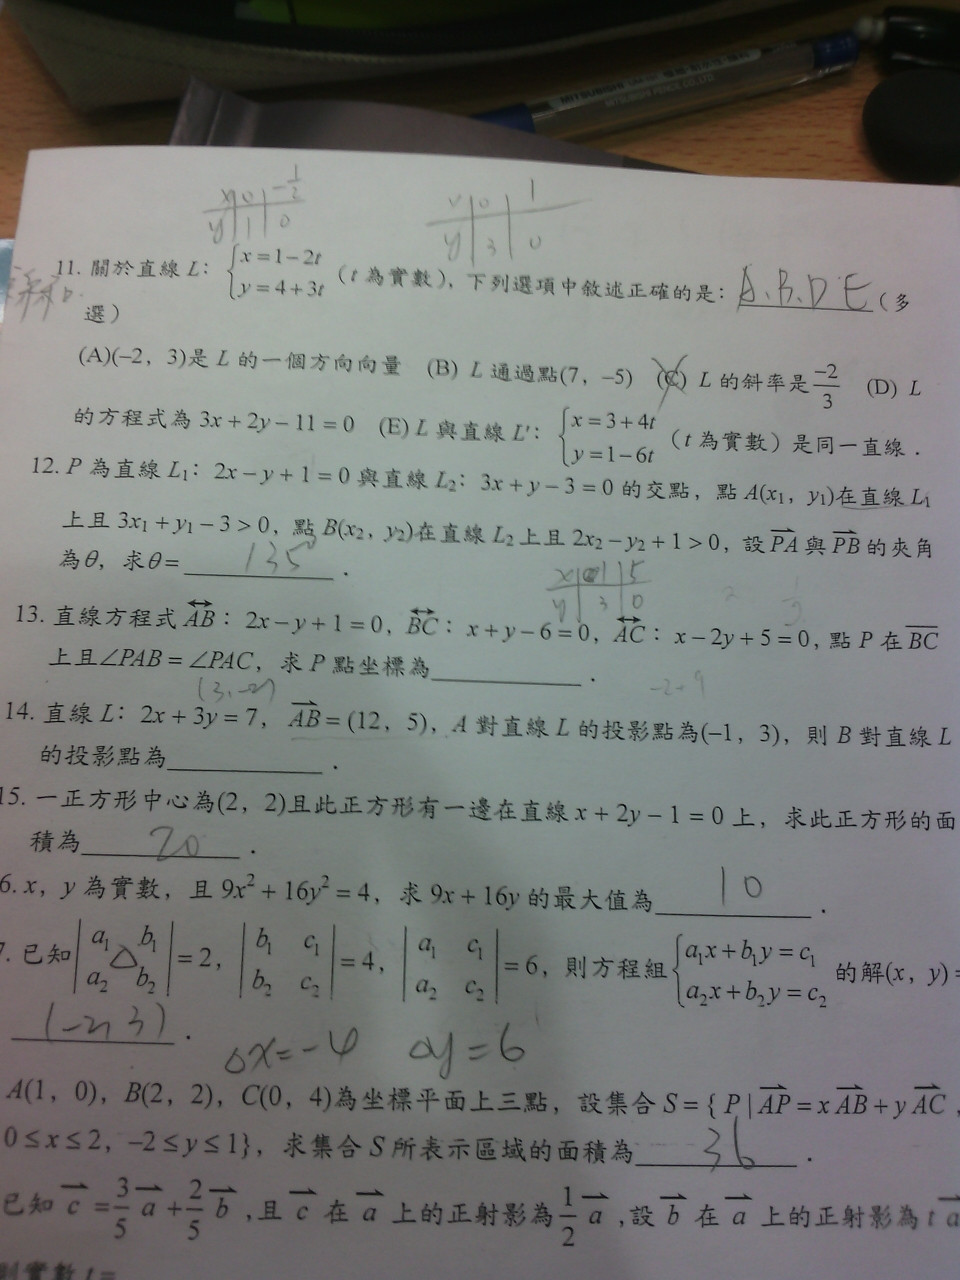 x 0 -1/2
y 1 0
x 0 1
y 3 0
MITSUBISHI
11. 關於直線 L：{x=1−2t, y=4+3t （t 為實數），下列選項中敘述正確的是：A.B.D E（多
選）
(A)(−2，3)是 L 的一個方向向量 (B) L 通過點(7，−5) (C) L 的斜率是 −2/3 (D) L
的方程式為 3x+2y−11=0 (E) L 與直線 L'：{x=3+4t, y=1−6t （t 為實數）是同一直線．
12. P 為直線 L₁：2x−y+1=0 與直線 L₂：3x+y−3=0 的交點，點 A(x₁，y₁)在直線 L₁
上且 3x₁+y₁−3>0，點 B(x₂，y₂)在直線 L₂ 上且 2x₂−y₂+1>0，設 PA 與 PB 的夾角
為θ，求θ= 135° ．
x 1 5
y 3 0
13. 直線方程式 AB：2x−y+1=0，BC：x+y−6=0，AC：x−2y+5=0，點 P 在 BC
上且∠PAB=∠PAC，求 P 點坐標為 ．
(3,-2)
-2+9
14. 直線 L：2x+3y=7，AB=(12，5)，A 對直線 L 的投影點為(−1，3)，則 B 對直線 L
的投影點為 ．
15. 一正方形中心為(2，2)且此正方形有一邊在直線 x+2y−1=0 上，求此正方形的面
積為 20 ．
6. x，y 為實數，且 9x²+16y²=4，求 9x+16y 的最大值為 10 ．
7. 已知 |a₁ b₁; a₂ b₂| =2，|b₁ c₁; b₂ c₂| =4，|a₁ c₁; a₂ c₂| =6，則方程組 {a₁x+b₁y=c₁, a₂x+b₂y=c₂ 的解(x，y)=
△
(-2, 3) ．
△x=-4 △y=6
A(1，0)，B(2，2)，C(0，4)為坐標平面上三點，設集合 S={P|AP=xAB+yAC，
0≤x≤2，−2≤y≤1}，求集合 S 所表示區域的面積為 36 ．
已知 c=3/5 a+2/5 b，且 c 在 a 上的正射影為 1/2 a，設 b 在 a 上的正射影為 t a
則實數 t=